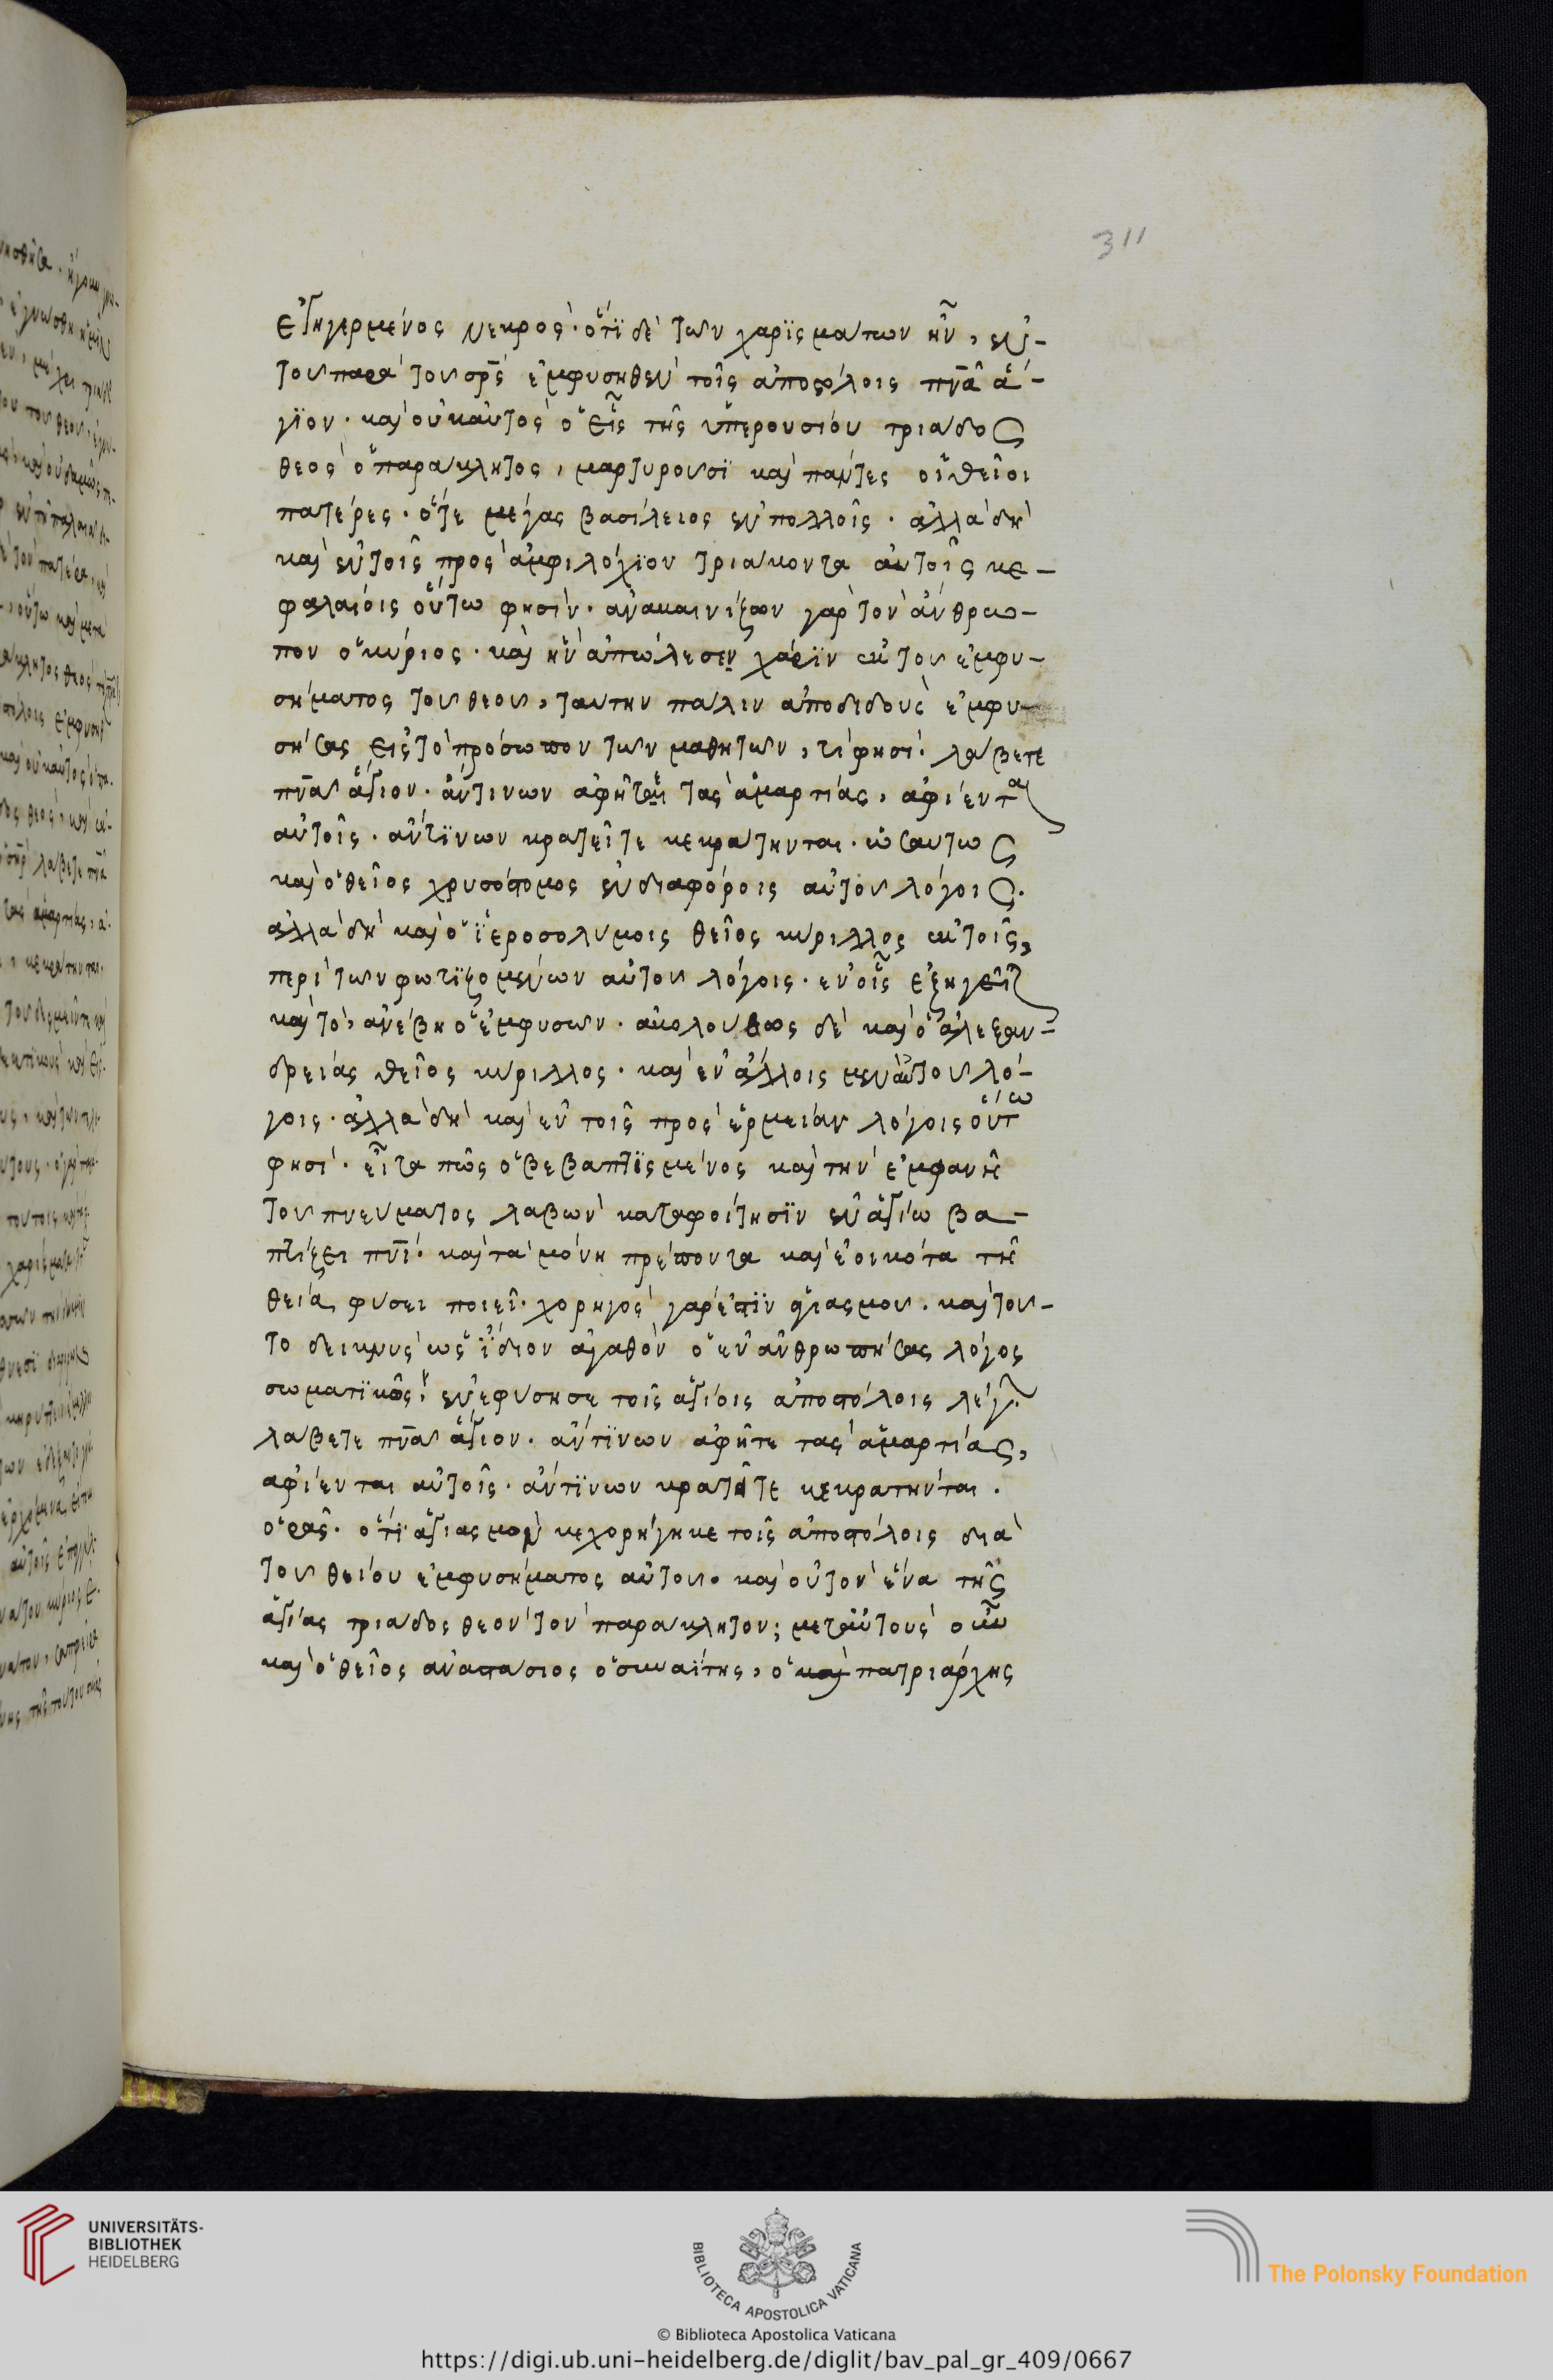 311
ἐξηγερμένος νεκρός· ὅτι δὲ τῶν χαρισμάτων ἦν, ἐν
τοῦ παρὰ τοῦ σρ̅ς ἐμφυσηθὲν τοῖς ἀποστόλοις πν̅α ἅ-
γιον· καὶ οὐκ αὐτὸς ὁ εἷς τῆς ὑπερουσίου τριάδος
θεὸς ὁ παράκλητος, μαρτυροῦσι καὶ πάντες οἱ θεῖοι
πατέρες· ὅτε μέγας βασίλειος ἐν πολλοῖς· ἀλλὰ δὴ
καὶ ἐν τοῖς πρὸς ἀμφιλόχιον τριάκοντα αὐτοῖς κε-
φαλαίοις οὕτω φησίν· ἀνακαινίζων γὰρ τὸν ἄνθρω-
πον ὁ κύριος· καὶ ἣν ἀπώλεσεν χάριν ἐκ τοῦ ἐμφυ-
σήματος τοῦ θεοῦ, ταύτην πάλιν ἀποδιδοὺς ἐμφυ-
σήσας εἰς τὸ πρόσωπον τῶν μαθητῶν, τί φησί· λάβετε
πν̅α ἅγιον· ἄν τινων ἀφῆτε τὰς ἁμαρτίας, ἀφίενται
αὐτοῖς· ἄν τινων κρατεῖτε κεκράτηνται· ὡσαύτως
καὶ ὁ θεῖος χρυσόστομος ἐν διαφόροις αὐτοῦ λόγοις·
ἀλλὰ δὴ καὶ ὁ ἱεροσολύμοις θεῖος κύριλλος ἐκ τοῖς,
περὶ τῶν φωτιζομένων αὐτοῦ λόγοις· ἐν οἷς ἐξηγεῖται
καὶ τὸ, ἀνέβη ὁ ἐμφυσῶν· ἀκολούθως δὲ καὶ ὁ ἀλεξαν-
δρείας θεῖος κύριλλος· καὶ ἐν ἄλλοις μὲν αὐτοῦ λό-
γοις· ἀλλὰ δὴ καὶ ἐν τοῖς πρὸς ἑρμείαν λόγοις οὕτω
φησί· εἶτα πῶς ὁ βεβαπτισμένος καὶ τὴν ἐμφανῆ
τοῦ πνεύματος λαβὼν καταφοίτησιν ἐν ἁγίω βα-
πτίζει πν̅ι· καὶ τὰ μόνη πρέποντα καὶ ἐοικότα τῆ
θεία φύσει ποιεῖ· χορηγὸς γάρ ἐστιν ἁγιασμοῦ. καὶ τοῦ-
το δεικνὺς ὡς ἴδιον ἀγαθὸν ὁ ἐνανθρωπήσας λόγος
σωματικῶς· ἐνεφύσησε τοῖς ἁγίοις ἀποστόλοις λέγων·
λάβετε πν̅α ἅγιον. ἄν τινων ἀφῆτε τὰς ἁμαρτίας,
ἀφίενται αὐτοῖς· ἄν τινων κρατῆτε κεκράτηνται.
ὁρᾶς· ὅτι ἁγιασμὸν κεχορήγηκε τοῖς ἀποστόλοις διὰ
τοῦ θείου ἐμφυσήματος αὐτοῦ· καὶ οὐ τὸν ἕνα τῆς
ἁγίας τριάδος θεὸν τὸν παράκλητον; μετ' αὐτοὺς οὖν
καὶ ὁ θεῖος ἀναστάσιος ὁ σιναΐτης, ὁ καὶ πατριάρχης
UNIVERSITÄTS-
BIBLIOTHEK
HEIDELBERG
BIBLIOTECA APOSTOLICA VATICANA
The Polonsky Foundation
© Biblioteca Apostolica Vaticana
https://digi.ub.uni-heidelberg.de/diglit/bav_pal_gr_409/0667